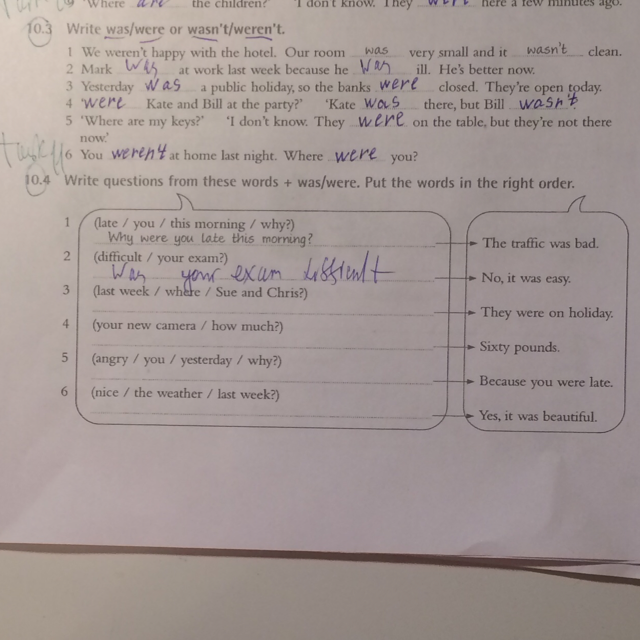 'Where are the children?' 'I don't know. They were here a few minutes ago.
10.3 Write was/were or wasn't/weren't.
1 We weren't happy with the hotel. Our room was very small and it wasn't clean.
2 Mark was at work last week because he was ill. He's better now.
3 Yesterday was a public holiday, so the banks were closed. They're open today.
4 'were Kate and Bill at the party?' 'Kate was there, but Bill wasn't
5 'Where are my keys?' 'I don't know. They were on the table, but they're not there
now.'
6 You weren't at home last night. Where were you?
10.4 Write questions from these words + was/were. Put the words in the right order.
1 (late / you / this morning / why?)
Why were you late this morning? The traffic was bad.
2 (difficult / your exam?)
Was your exam difficult No, it was easy.
3 (last week / where / Sue and Chris?)
They were on holiday.
4 (your new camera / how much?)
Sixty pounds.
5 (angry / you / yesterday / why?)
Because you were late.
6 (nice / the weather / last week?)
Yes, it was beautiful.